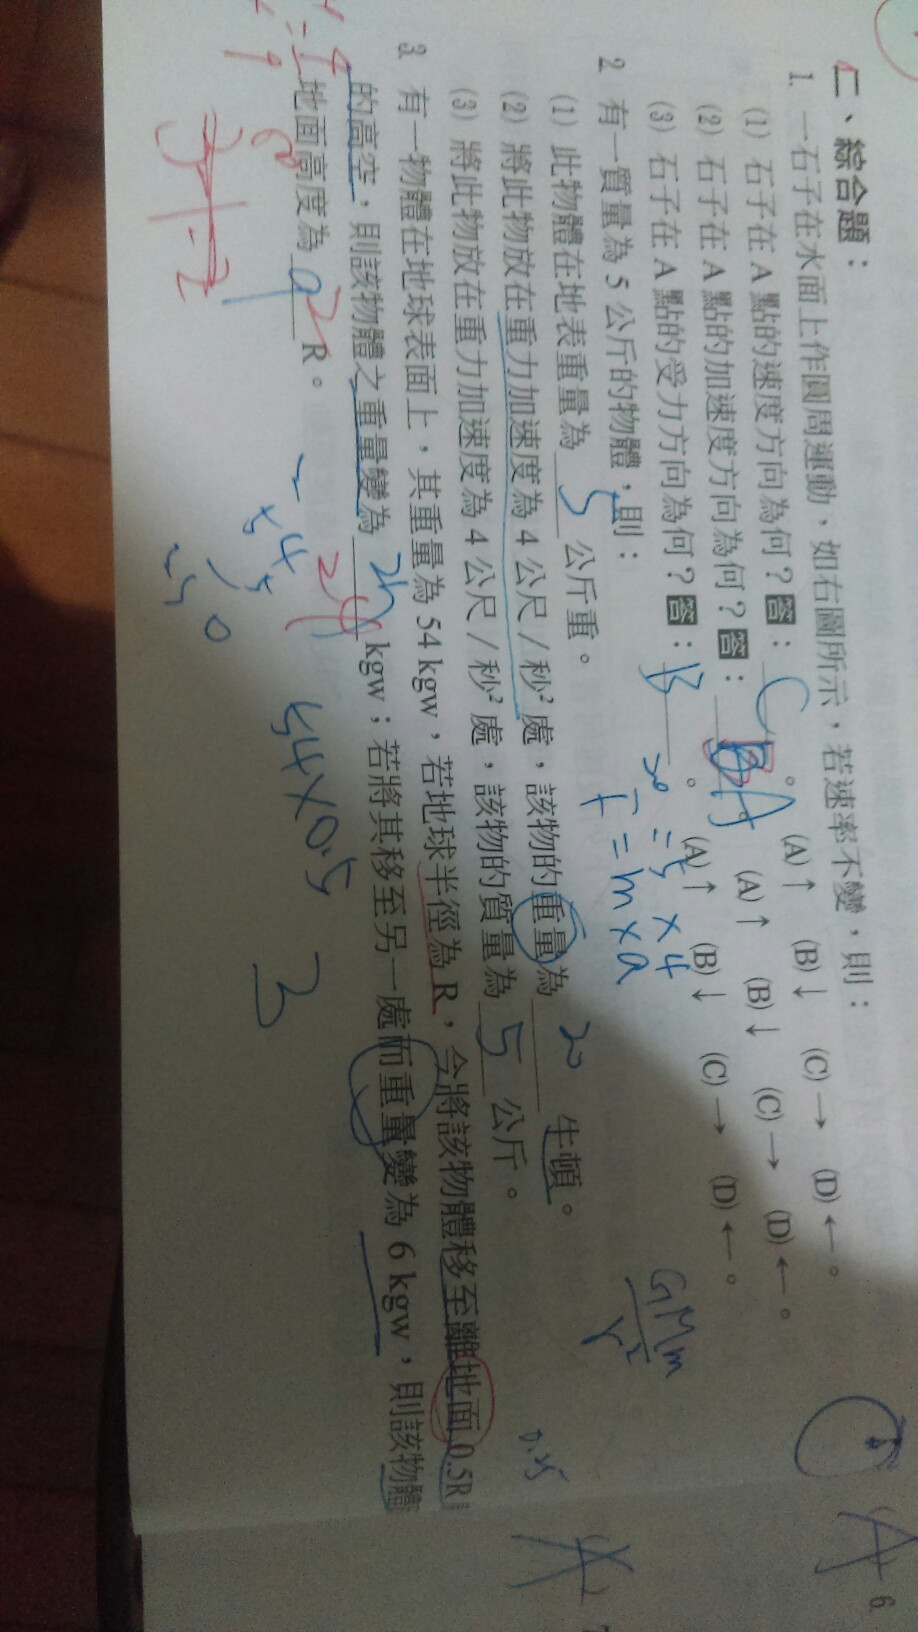 二、綜合題：
1. 一石子在水面上作圓周運動，如右圖所示，若速率不變，則：
(1) 石子在 A 點的速度方向為何？答： C 。 (A)↑ (B)↓ (C)→ (D)←。
(2) 石子在 A 點的加速度方向為何？答： A (A)↑ (B)↓ (C)→ (D)←。
(3) 石子在 A 點的受力方向為何？答： B 。 (A)↑ (B)↓ (C)→ (D)←。
2. 有一質量為 5 公斤的物體，則：
(1) 此物體在地表重量為 5 公斤重。
(2) 將此物放在重力加速度為 4 公尺／秒²處，該物的重量為 20 牛頓。
(3) 將此物放在重力加速度為 4 公尺／秒²處，該物的質量為 5 公斤。
3. 有一物體在地球表面上，其重量為 54 kgw，若地球半徑為 R，今將該物體移至離地面 0.5R
的高空，則該物體之重量變為 24 kgw；若將其移至另一處而重量變為 6 kgw，則該物體
地面高度為 2 R。
20 = 5 × 4
F = m × a
GMm
r²
0.25
54×0.5
3
6
7